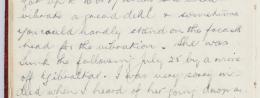 vibrate a good deal & sometimes
you could hardly stand on the focastle
head for the vibration. She was
sunk the following July 25 by a mine
off Gibraltar. I was very sorry in-
deed when I heard of her going down as